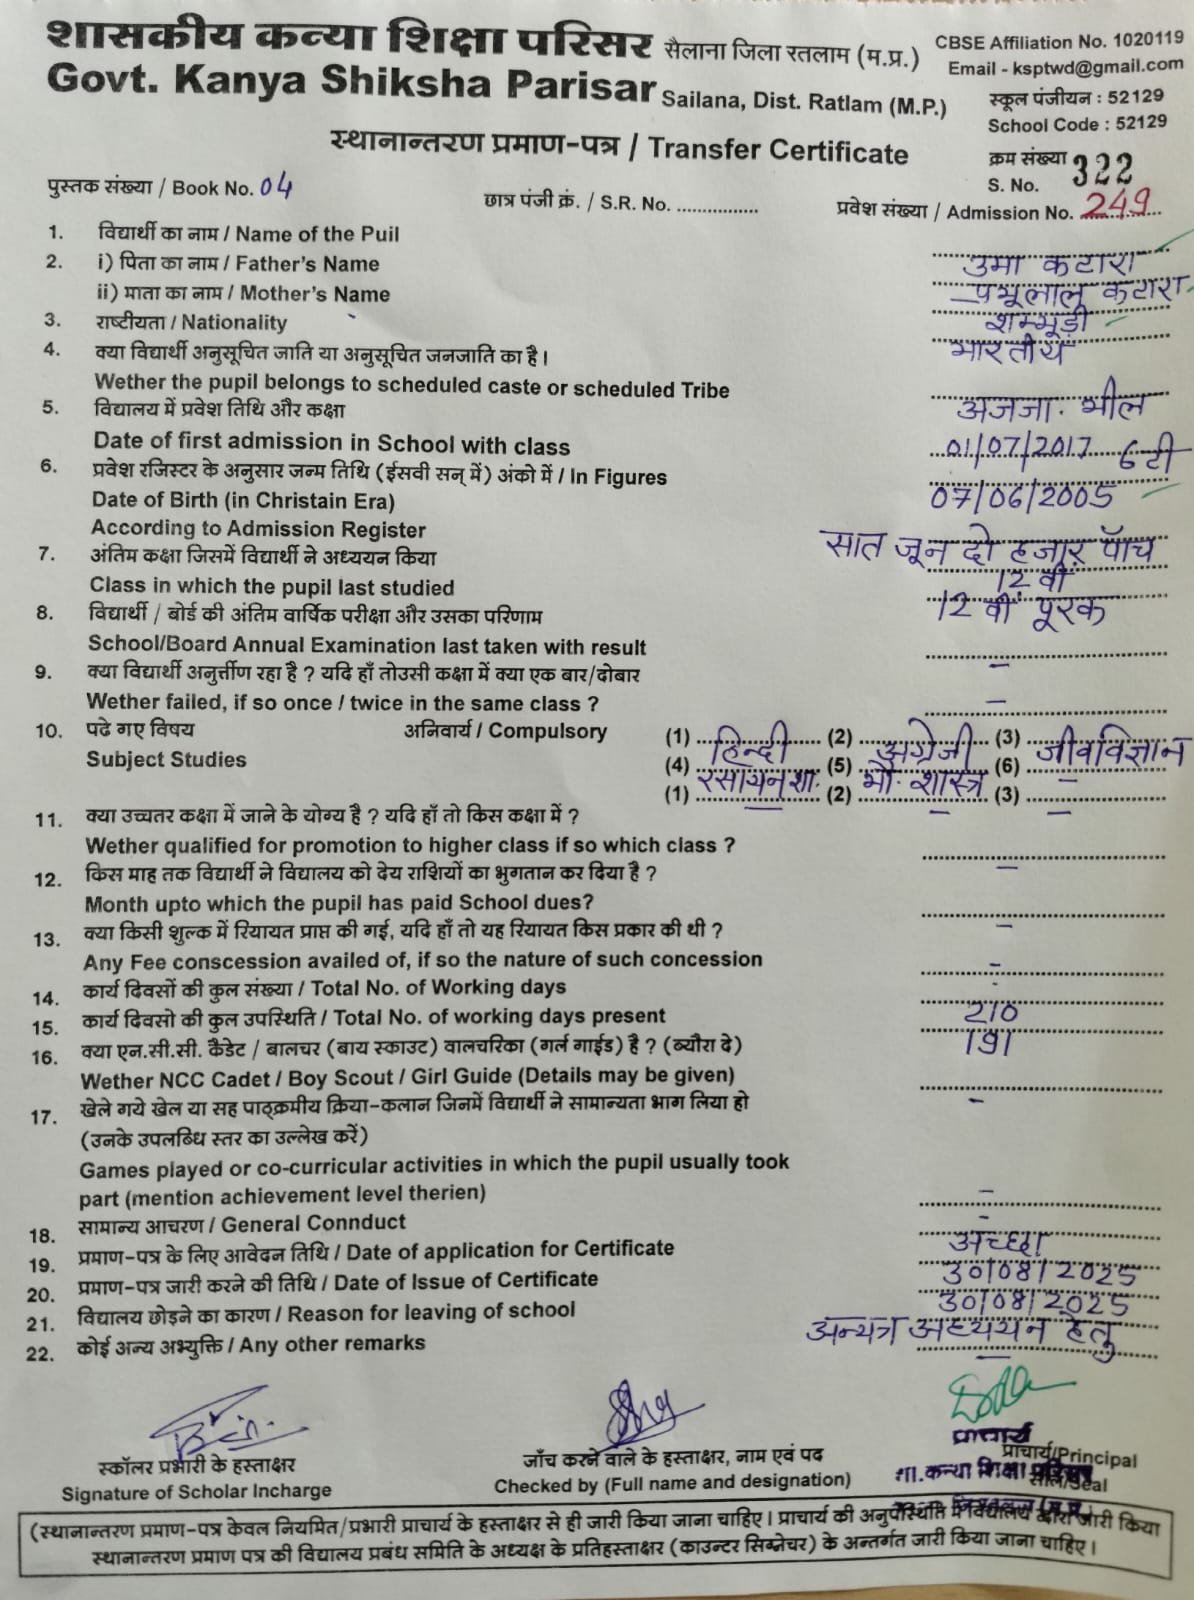 शासकीय कन्या शिक्षा परिसर सैलाना जिला रतलाम (म.प्र.)
Govt. Kanya Shiksha Parisar Sailana, Dist. Ratlam (M.P.)
CBSE Affiliation No. 1020119
Email - ksptwd@gmail.com
स्कूल पंजीयन : 52129
School Code : 52129
स्थानान्तरण प्रमाण-पत्र / Transfer Certificate
क्रम संख्या
S. No. 322
पुस्तक संख्या / Book No. 04
छात्र पंजी क्रं. / S.R. No. ...............
प्रवेश संख्या / Admission No. 249
1. विद्यार्थी का नाम / Name of the Puil उमा कटारा
2. i) पिता का नाम / Father's Name प्रभूलाल कटारा
ii) माता का नाम / Mother's Name शम्भूड़ी
3. राष्टीयता / Nationality भारतीय
4. क्या विद्यार्थी अनुसूचित जाति या अनुसूचित जनजाति का है।
Wether the pupil belongs to scheduled caste or scheduled Tribe अजजा. भील
5. विद्यालय में प्रवेश तिथि और कक्षा
Date of first admission in School with class 01/07/2017 6टी
6. प्रवेश रजिस्टर के अनुसार जन्म तिथि (ईसवी सन् में) अंको में / In Figures 07/06/2005
Date of Birth (in Christain Era)
According to Admission Register सात जून दो हजार पॉच
7. अंतिम कक्षा जिसमें विद्यार्थी ने अध्ययन किया
Class in which the pupil last studied 12 वी
8. विद्यार्थी / बोर्ड की अंतिम वार्षिक परीक्षा और उसका परिणाम 12 वी पूरक
School/Board Annual Examination last taken with result –
9. क्या विद्यार्थी अनुर्त्तीण रहा है ? यदि हाँ तोउसी कक्षा में क्या एक बार/दोबार
Wether failed, if so once / twice in the same class ? –
10. पढे गए विषय अनिवार्य / Compulsory (1) हिन्दी (2) अंग्रेजी (3) जीवविज्ञान
Subject Studies (4) रसायनशा. (5) भौ. शास्त्र (6) –
(1) – (2) – (3) –
11. क्या उच्चतर कक्षा में जाने के योग्य है ? यदि हाँ तो किस कक्षा में ?
Wether qualified for promotion to higher class if so which class ? –
12. किस माह तक विद्यार्थी ने विद्यालय को देय राशियों का भुगतान कर दिया है ?
Month upto which the pupil has paid School dues? –
13. क्या किसी शुल्क में रियायत प्राप्त की गई, यदि हाँ तो यह रियायत किस प्रकार की थी ?
Any Fee conscession availed of, if so the nature of such concession –
14. कार्य दिवसों की कुल संख्या / Total No. of Working days 210
15. कार्य दिवसो की कुल उपस्थिति / Total No. of working days present 191
16. क्या एन.सी.सी. कैडेट / बालचर (बाय स्काउट) वालचरिका (गर्ल गाईड) है ? (ब्यौरा दे)
Wether NCC Cadet / Boy Scout / Girl Guide (Details may be given) –
17. खेले गये खेल या सह पाठ्क्रमीय क्रिया-कलान जिनमें विद्यार्थी ने सामान्यता भाग लिया हो
(उनके उपलब्धि स्तर का उल्लेख करें)
Games played or co-curricular activities in which the pupil usually took
part (mention achievement level therien) –
18. सामान्य आचरण / General Connduct अच्छा
19. प्रमाण-पत्र के लिए आवेदन तिथि / Date of application for Certificate 30/08/2025
20. प्रमाण-पत्र जारी करने की तिथि / Date of Issue of Certificate 30/08/2025
21. विद्यालय छोड़ने का कारण / Reason for leaving of school अन्यत्र अध्ययन हेतु
22. कोई अन्य अभ्युक्ति / Any other remarks –
स्कॉलर प्रभारी के हस्ताक्षर
Signature of Scholar Incharge
जाँच करने वाले के हस्ताक्षर, नाम एवं पद
Checked by (Full name and designation)
प्राचार्य
प्राचार्य/Principal
शा.कन्या शिक्षा परिसर
सील/Seal
(स्थानान्तरण प्रमाण-पत्र केवल नियमित/प्रभारी प्राचार्य के हस्ताक्षर से ही जारी किया जाना चाहिए। प्राचार्य की अनुपस्थिति में विद्यालय द्वारा जारी किया
स्थानान्तरण प्रमाण पत्र की विद्यालय प्रबंध समिति के अध्यक्ष के प्रतिहस्ताक्षर (काउन्टर सिग्नेचर) के अन्तर्गत जारी किया जाना चाहिए।